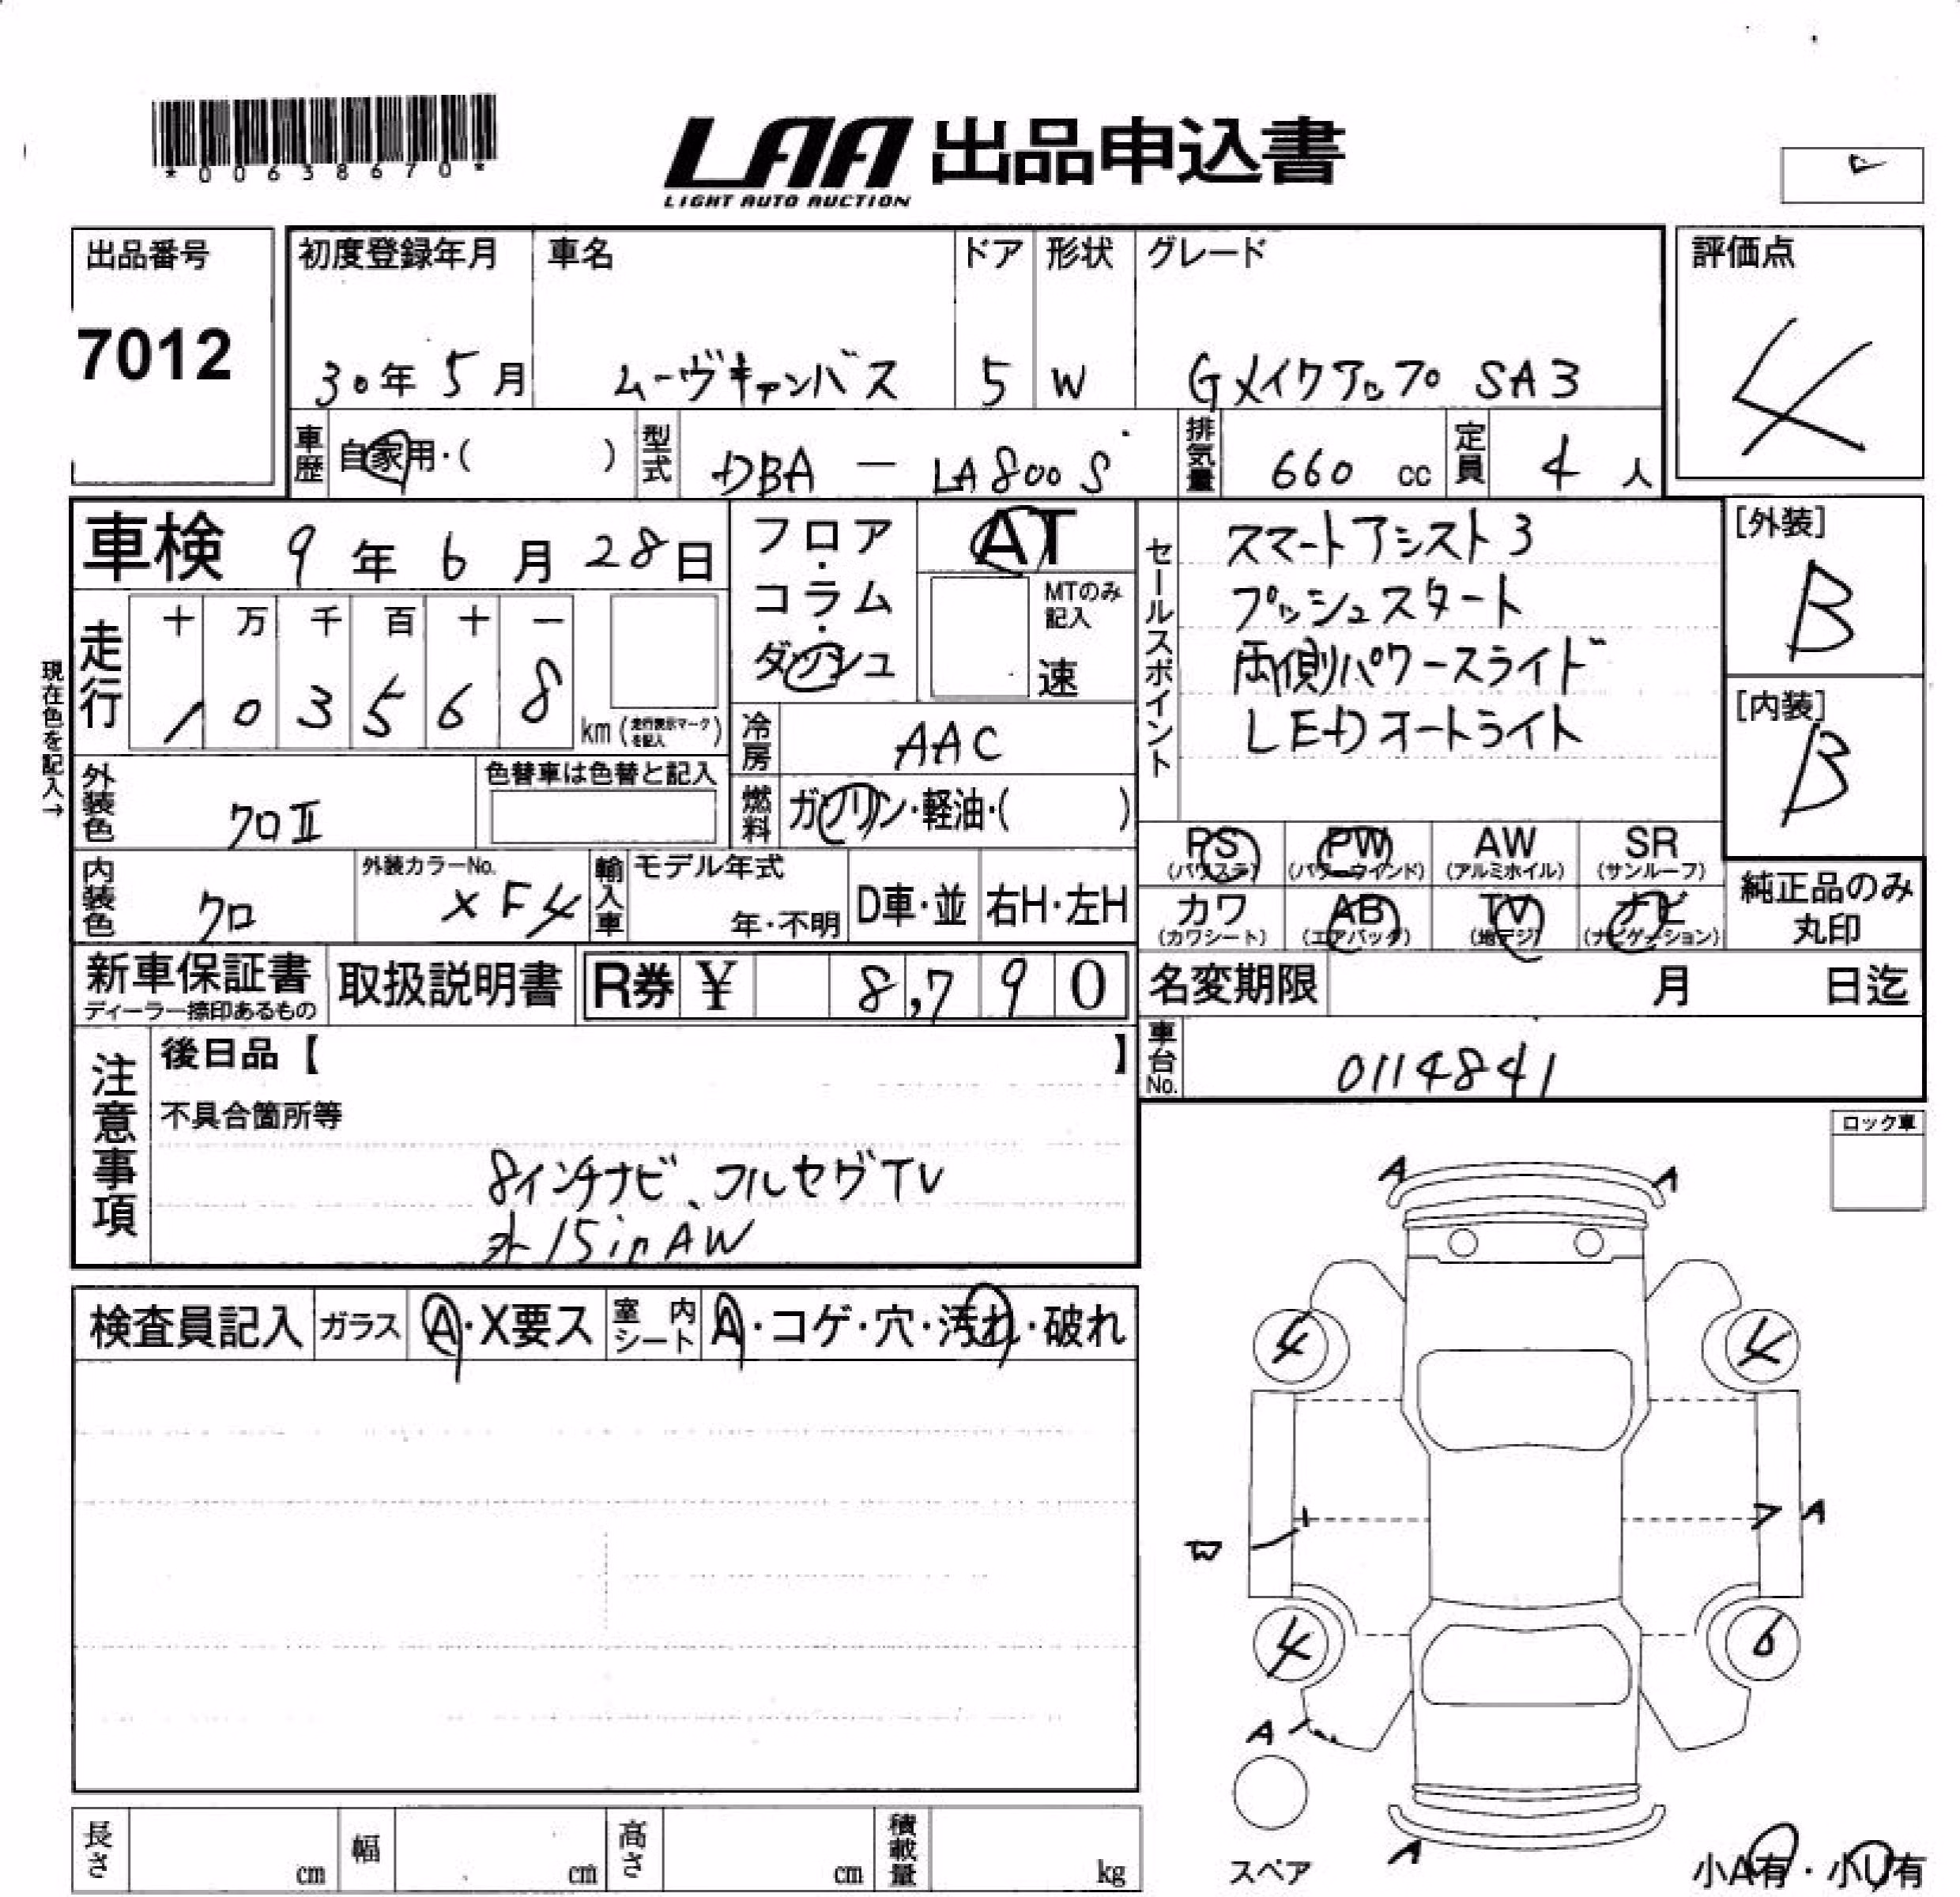 *00638670*
LAA 出品申込書
LIGHT AUTO AUCTION
出品番号
7012
初度登録年月
30年5月
車名
ムーヴキャンバス
ドア
5
形状
W
グレード
Gメイクアップ SA3
評価点
4
車歴
自家用・( )
型式
DBA - LA800S
排気量
660 cc
定員
4人
車検 9年6月28日
フロア・コラム・ダッシュ
AT
MTのみ記入
速
現在色を記入→
走行
十 万 千 百 十 一
1 0 3 5 6 8
km (走行表示マークを記入)
冷房
AAC
外装色
クロⅡ
色替車は色替と記入
燃料
ガソリン・軽油・( )
内装色
クロ
外装カラーNo.
XF4
輸入車
モデル年式
年・不明
D車・並
右H・左H
セールスポイント
スマートアシスト3
プッシュスタート
両側パワースライド
LEDオートライト
[外装]
B
[内装]
B
PS PW AW SR
(パワステ) (パワーウインド) (アルミホイル) (サンルーフ)
カワ AB TV ナビ
(カワシート) (エアバッグ) (地デジ) (ナビゲーション)
純正品のみ
丸印
新車保証書
ディーラー捺印あるもの
取扱説明書
R券 ¥ 8,790
名変期限 月 日迄
車台No.
0114841
注意事項
後日品【 】
不具合箇所等
8インチナビ、フルセグTV
外15inAW
ロック車
検査員記入
ガラス
A・X要ス
室内シート
A・コゲ・穴・汚れ・破れ
A A
4 4
A
4 6
A
スペア
A
小A有・小U有
長さ cm
幅 cm
高さ cm
積載量 kg